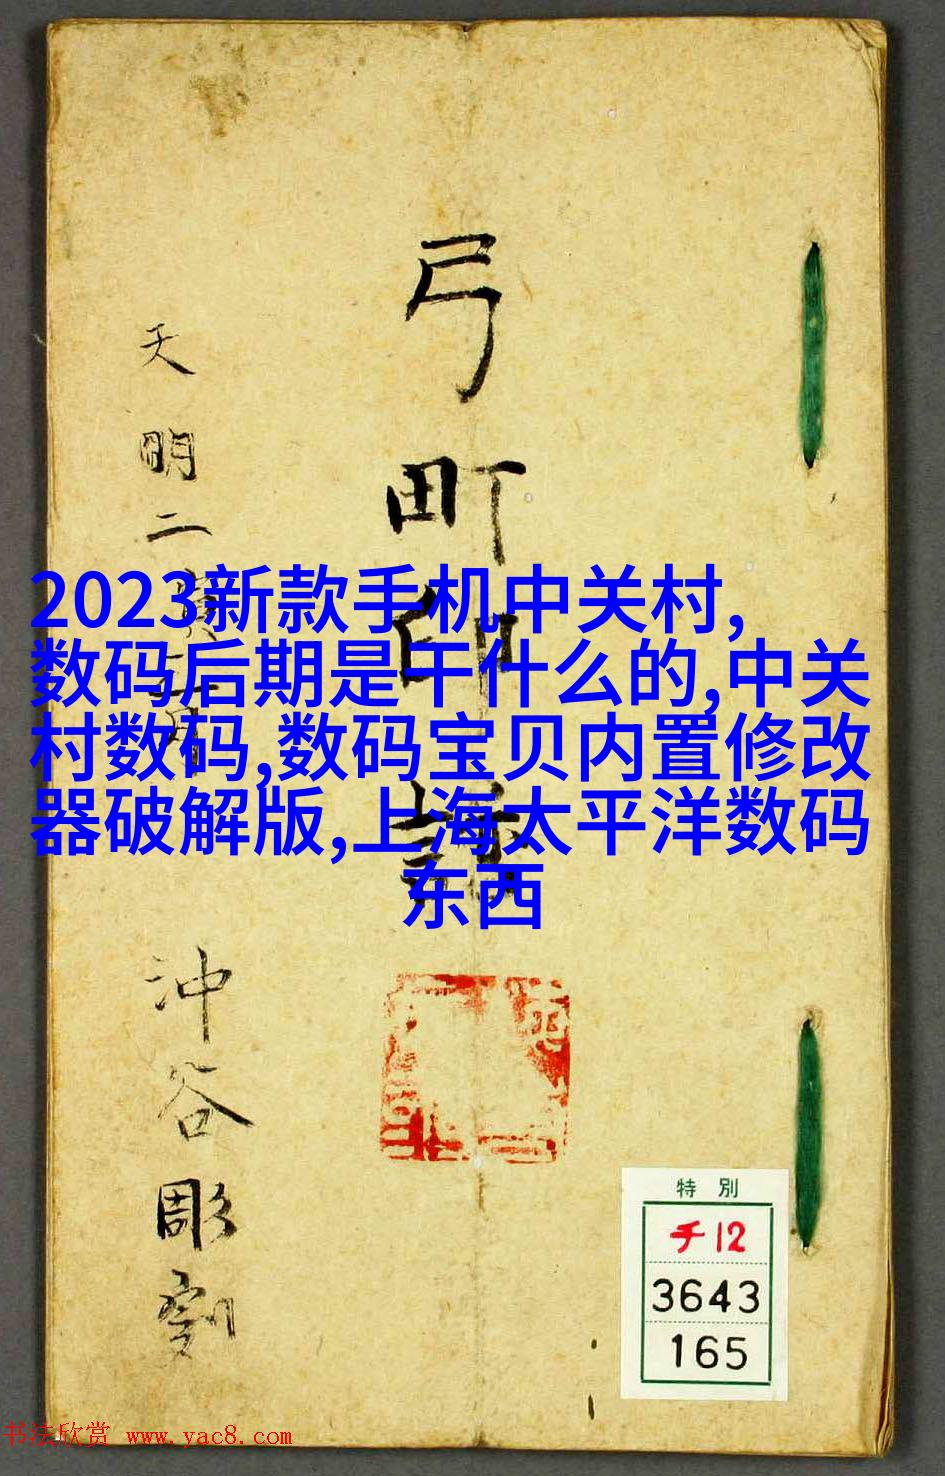 弓町印譜
天明二寅
沖谷彫刻
2023新款手机中关村,
数码后期是干什么的,中关
村数码,数码宝贝内置修改
器破解版,上海太平洋数码
东西
特別
チ12
3643
165
书法欣赏 www.yac8.com